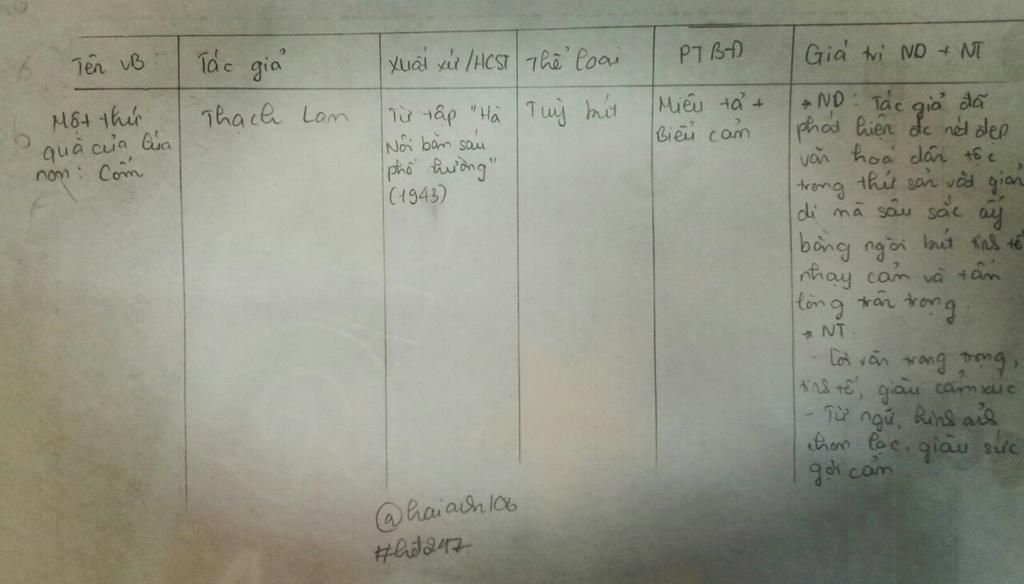 Tên VB
Tác giả
Xuất xứ/HCST
Thể loại
PTBĐ
Giá trị ND + NT
Một thứ
quà của lúa
non: Cốm
Thạch Lam
Từ tập "Hà
Nội băm sáu
phố phường"
(1943)
Tuỳ bút
Miêu tả +
Biểu cảm
* ND: Tác giả đã
phát hiện đc nét đẹp
văn hoá dân tộc
trong thứ sản vật giản
dị mà sâu sắc ấy
bằng ngòi bút tinh tế
nhạy cảm và tấm
lòng trân trọng.
* NT:
- Lời văn trang trọng,
tinh tế, giàu cảm xúc
- Từ ngữ, hình ảnh
chọn lọc, giàu sức
gợi cảm
@haianh106